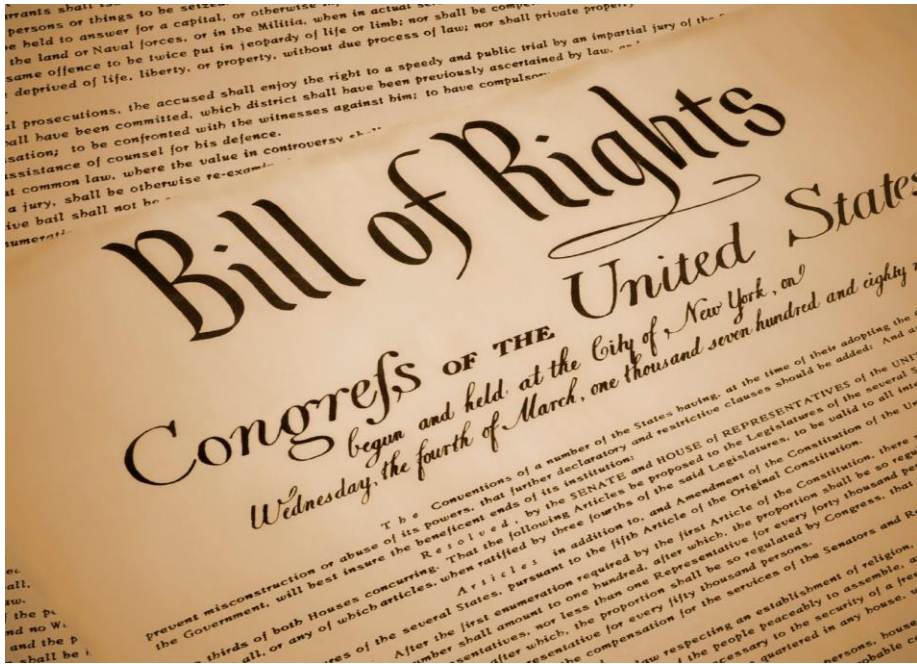 persons or things to be seized
be held to answer for a capital, or otherwise
the land or Naval forces, or in the Militia, when in actual
same offence to be twice put in jeopardy of life or limb; nor shall be
deprived of life, liberty, or property, without due process of law; nor shall private property
prosecutions, the accused shall enjoy the right to a speedy and public trial by an impartial jury of the
shall have been committed, which district shall have been previously ascertained by law,
to be confronted with the witnesses against him; to have
assistance of counsel for his defence.
at common law, where the value in controversy
a jury, shall be otherwise
bail shall not be
Bill of Rights
Congreſs OF THE United States
begun and held at the City of New York, on
Wednesday, the fourth of March, one thousand seven hundred and eighty
The Conventions of a number of the States having, at the time of their adopting the
prevent misconstruction or abuse of its powers, that further declaratory and restrictive clauses should be added: And
the Government, will best insure the beneficent ends of its institution:
Resolved, by the SENATE and HOUSE of REPRESENTATIVES of the
thirds of both Houses concurring. That the following Articles be proposed to the Legislatures of the several
all, or any of which articles, when ratified by three fourths of the said Legislatures, to be valid to all
Articles in addition to, and Amendment of the Constitution of the
of the several States, pursuant to the fifth Article of the Original Constitution.
After the first enumeration required by the first Article of the Constitution, there
shall amount to one hundred, after which, the proportion shall be so
nor less than one Representative for every forty thousand
after which, the proportion shall be so regulated by Congress, that
for every fifty thousand persons.
the compensation for the services of the Senators and
law respecting an establishment of religion,
the people peaceably to assemble,
to the security of a
quartered in any house,
persons,